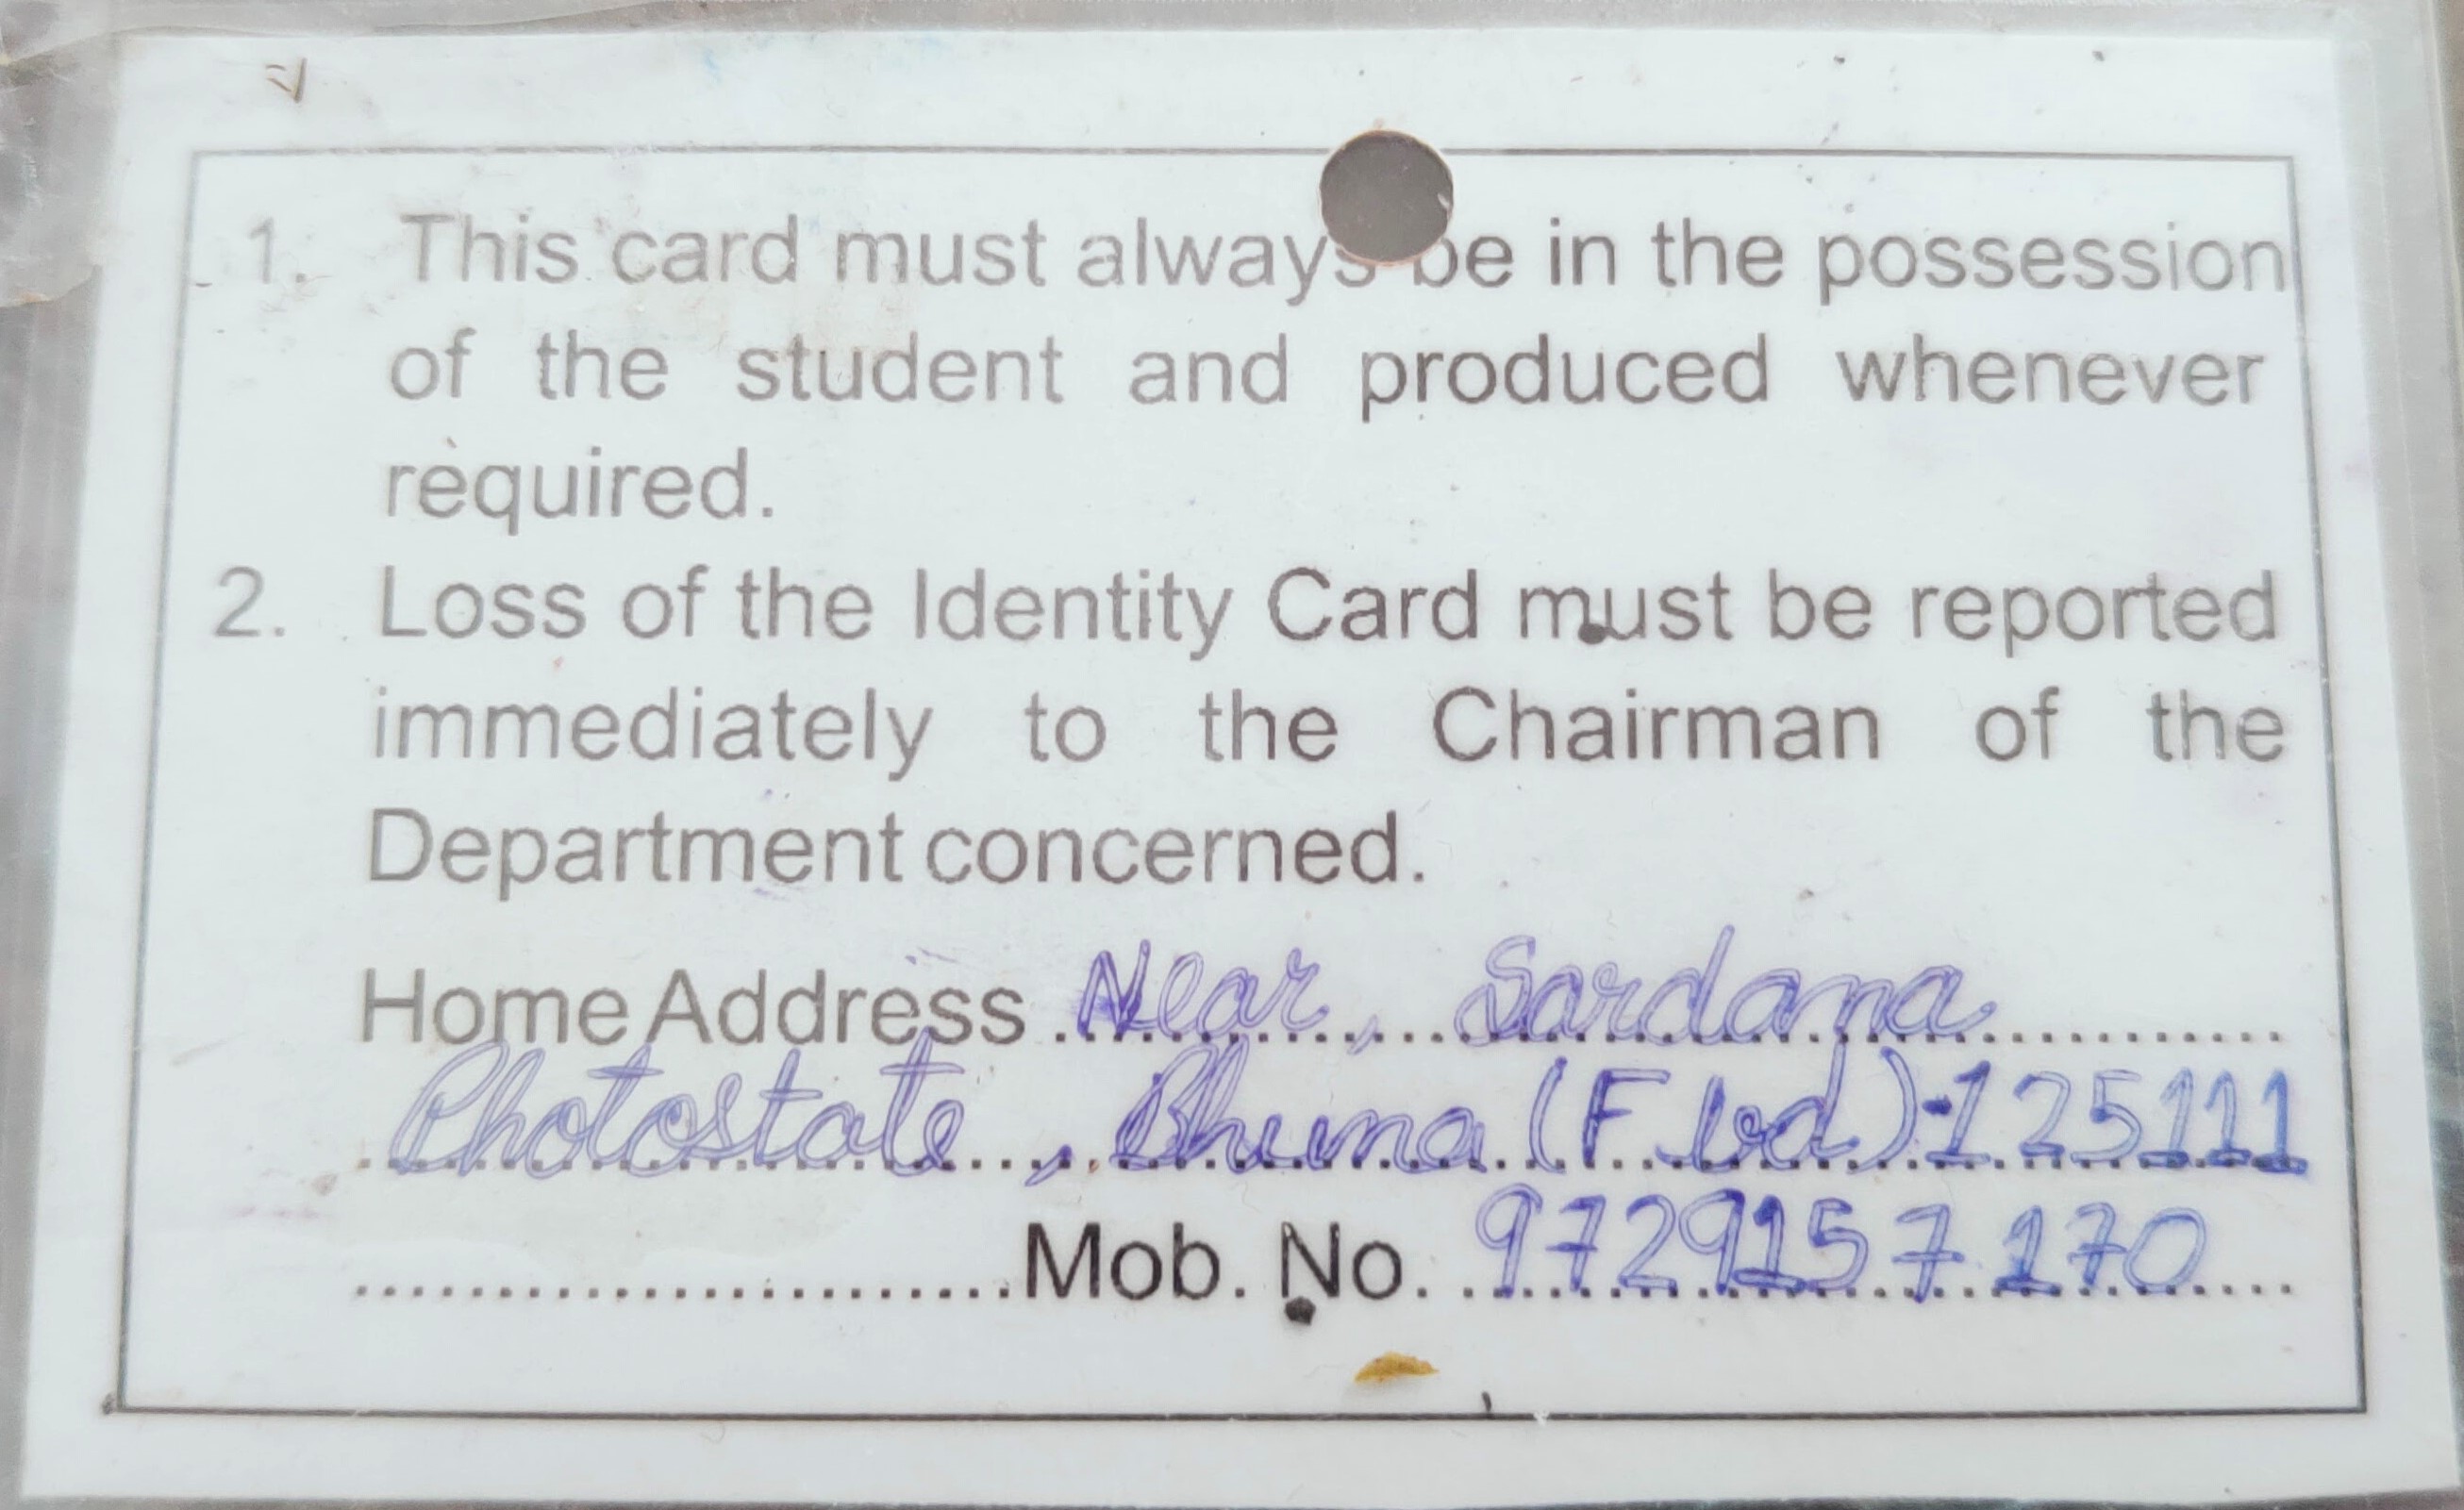 1. This card must always be in the possession
of the student and produced whenever
required.
2. Loss of the Identity Card must be reported
immediately to the Chairman of the
Department concerned.
Home Address Near, Sardana
Photostate, Bhuna (F bd)-125111
Mob. No. 9729157170